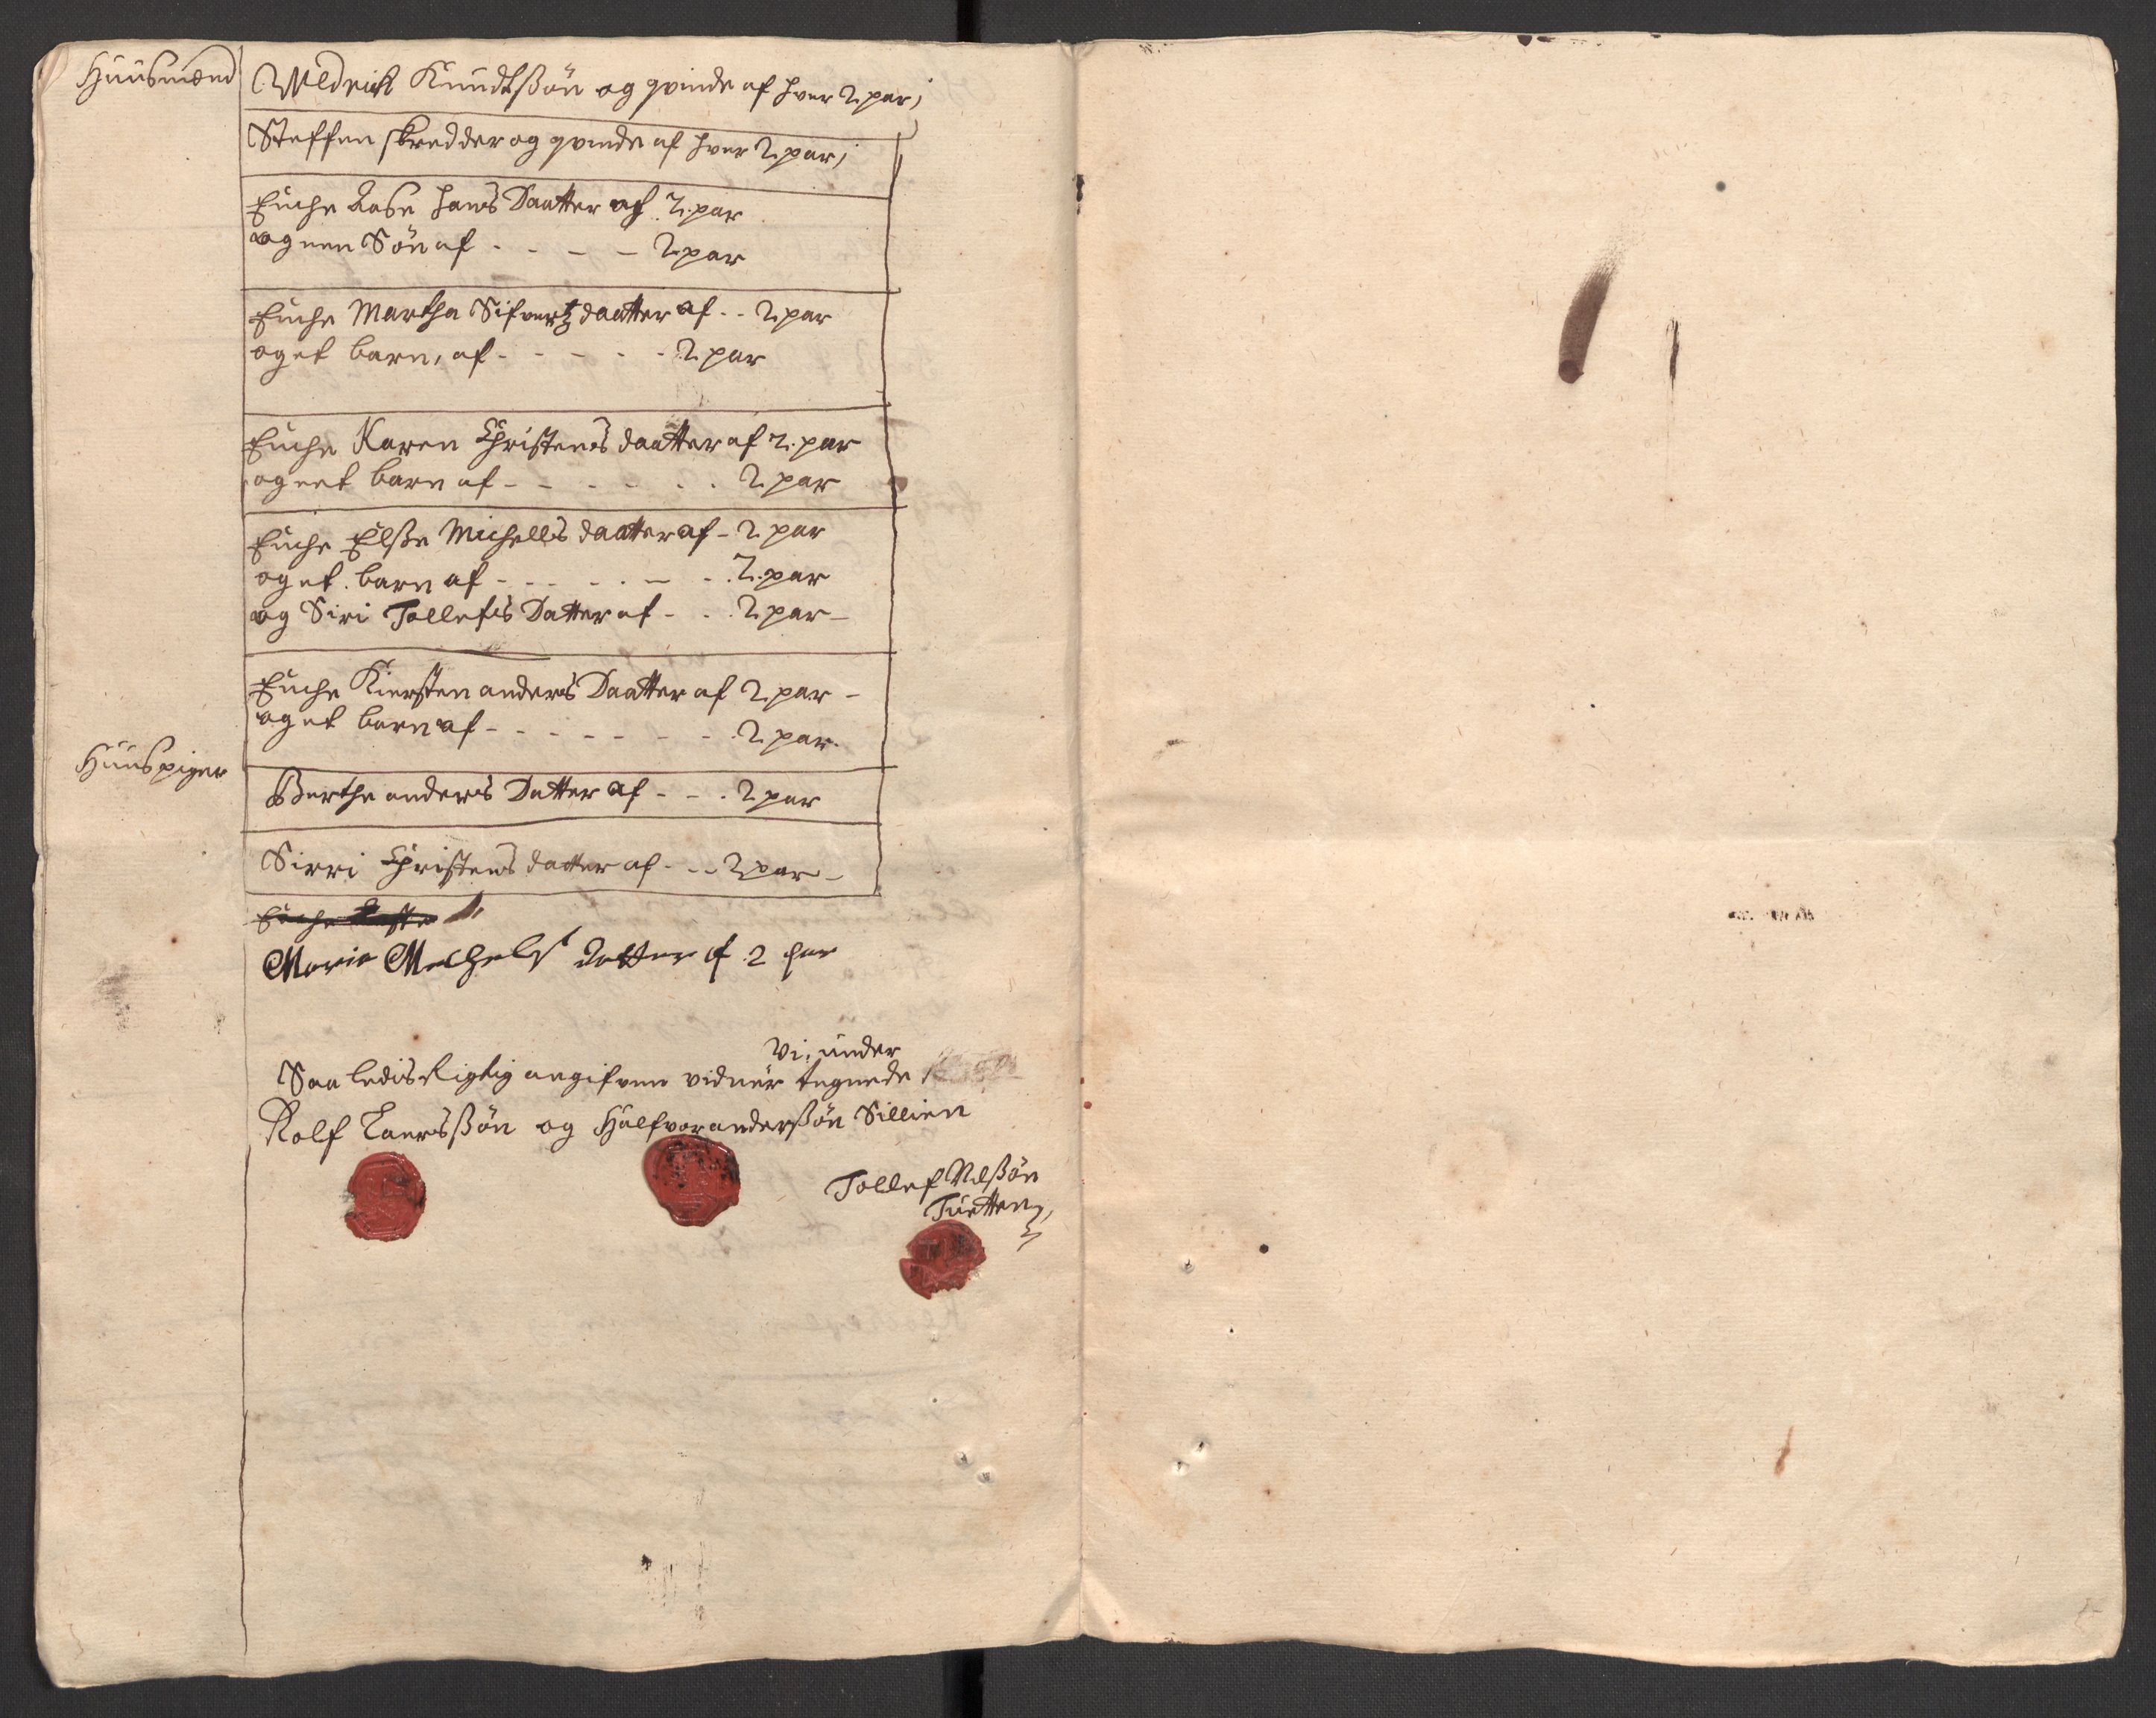 Huusmænd
Wldrich Knudtßøn og qvinde af hver 2 par,
Steffen skredder og qvinde af hver 2 par,
Enche Aase Hans Daatter af 2. par
og een Søn af - - - - 2 par
Enche Martha Sifvertz daatter af - - 2 par
og et barn, af - - - - - 2 par
Enche Karen Christens daatter af 2. par
og eet barn af - - - - - - 2 par
Enche Elße Michells daatter af - 2 par
og et barn af - - - - - - 2. par
og Siri Tollefs Datter af - - 2 par -
Enche Kiersten anders Daatter af 2 par -
og et barn af - - - - - - - 2 par.
Huuspiger
Berthe anders Datter af - - - 2 par
Sirri Christens datter af - - - 2 par -
Enche
Marie Mechels datter af 2 par
Vi, under
Saaledis Rigtig angifven vidner tegnede
Rolf Laersßøn og Halfvor anderßøn Sillien
Tollef Nilßøn
Tuetten,